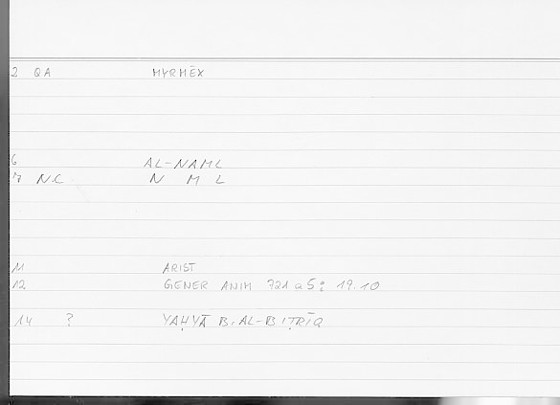 2 QA MYRMĒX
6 AL-NAML
7 N.C N M L
11 ARIST
12 GENER ANIM 721 a 5 : 19.10
14 ? YAḤYĀ B. AL-BIṬRĪQ